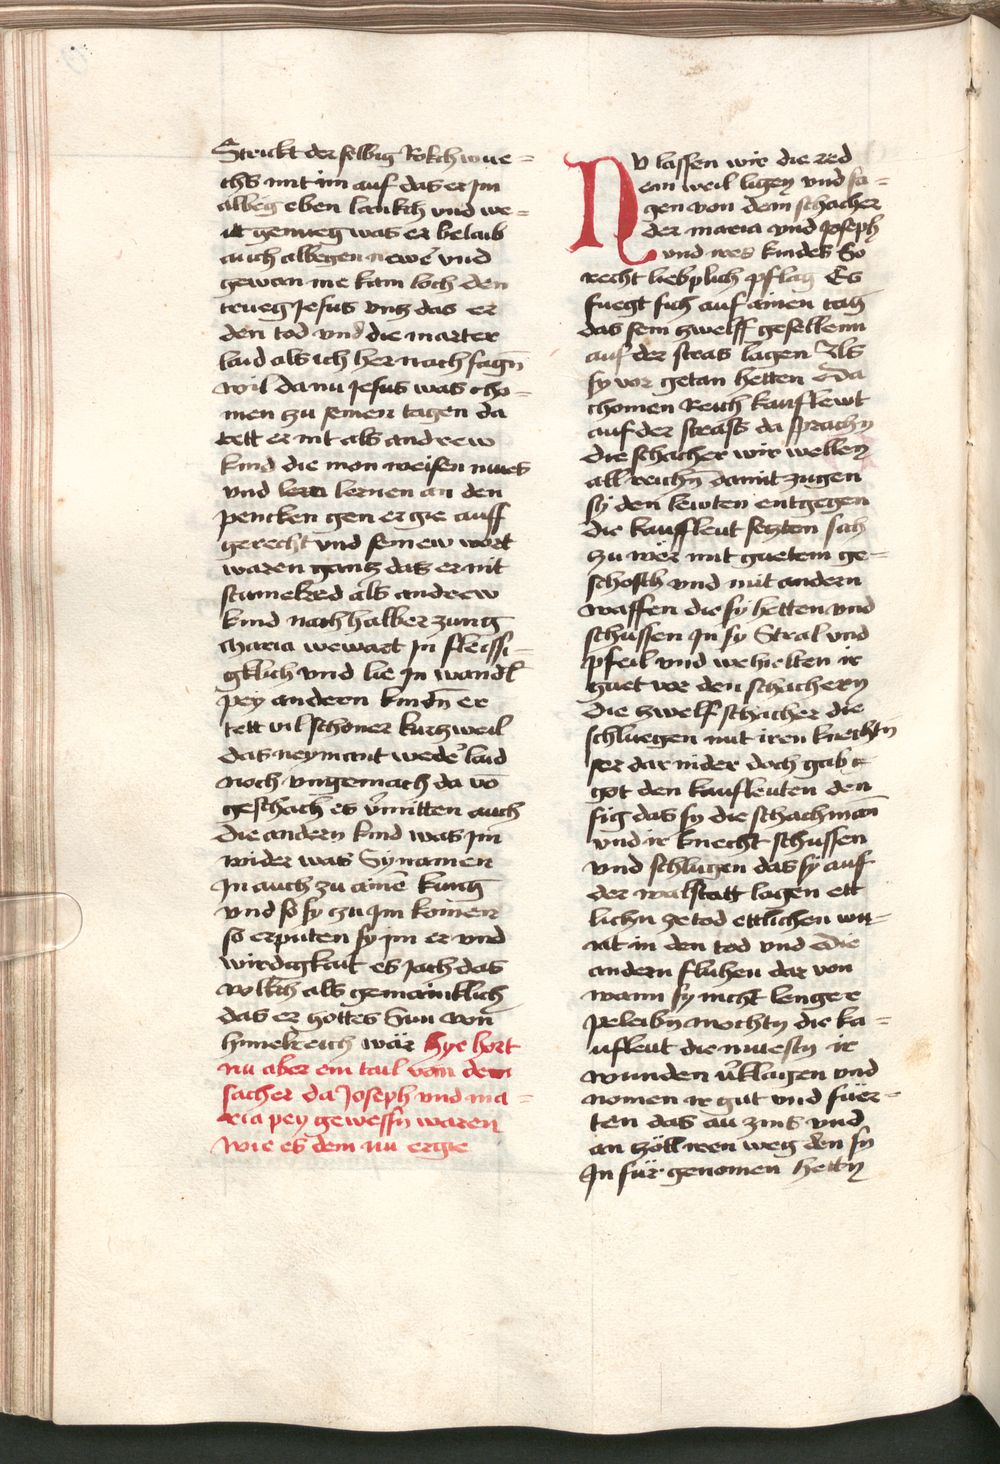 Strickt der selbig Rokch wue=
chs mit im auf das er jm
albeg eben lankch vnd we=
it genueg was er belaib
auch albegen newe vnd
gewan nie kain loch den
trueg Jesus vntz das er
den tod vnd die marter
laid als ich her nach sagn
wil da nu Jesus was cho=
men zu seinen tagen da
tett er nit als andrew
kind die mon weisen mues
vnd lern lernen an den
pencken gen er gie auff
gerecht vnd seinew wort
waren gantz das er nit
stamekred als andrew
kind nach halber zung
Maria wewart Jn fleissi=
gklich vnd lie Jn wandl
pey andern kindn er
tett vil schoner kurzweil
das neymant weder laid
noch vngemach da vo
geschach es vmitten auch
die andern kind was jm
wider was Sy namen
Jn auch zu aine kung
vnd so sy zu Jm komen
so erputen sy jm er vnd
wirdigkait es jach das
volkch als gemainklich
das er gottes Sun von
himelreich wär hye hort
nu aber ein tail von dem
sacher da Joseph vnd ma=
ria pey gewessn waren
wie es dem nu ergie
Nv lassen wir die red
ein weil ligen vnd sa=
gen von dem schacher
der maria vnd Joseph
vnd ires kindes So
recht lieblich pflag Es
fuegt sich auf ainen tag
das sein zwelff gesellenn
auf der stras lagen Als
sy vor getan hetten Da
chomen Reich kauflewt
auf der strass da sprachn
die schacher wir wellen
all reichn damit zugen
sy den lewten entgegen
die kauffleut setzten sich
zu wer mit guetem ge=
schosch vnd mit andern
waffen die sy hetten vnd
schussen Jn sy Stral vnd
pfeil vnd wehielten ir
guet vor den schachern
die zwelf schacher die
schluegen mit iren knechtn
ser dar nider doch gab
got den kaufleuten den
sig das sy die schachman
vnd ir knecht schussen
vnd schlugen das sy auf
der walstatt lagen ett
lichn ze tod ettlichen wu=
nt in den tod vnd die
andern fluhen dar von
wann sy nicht lenger
peleibn mochtn die ka=
ufleut die muestn ir
wunden vklagen vnd
nomen ir gut vnd füer=
ten das an zins vnd
an zöll iren weg den sy
Jn für genomen hettn